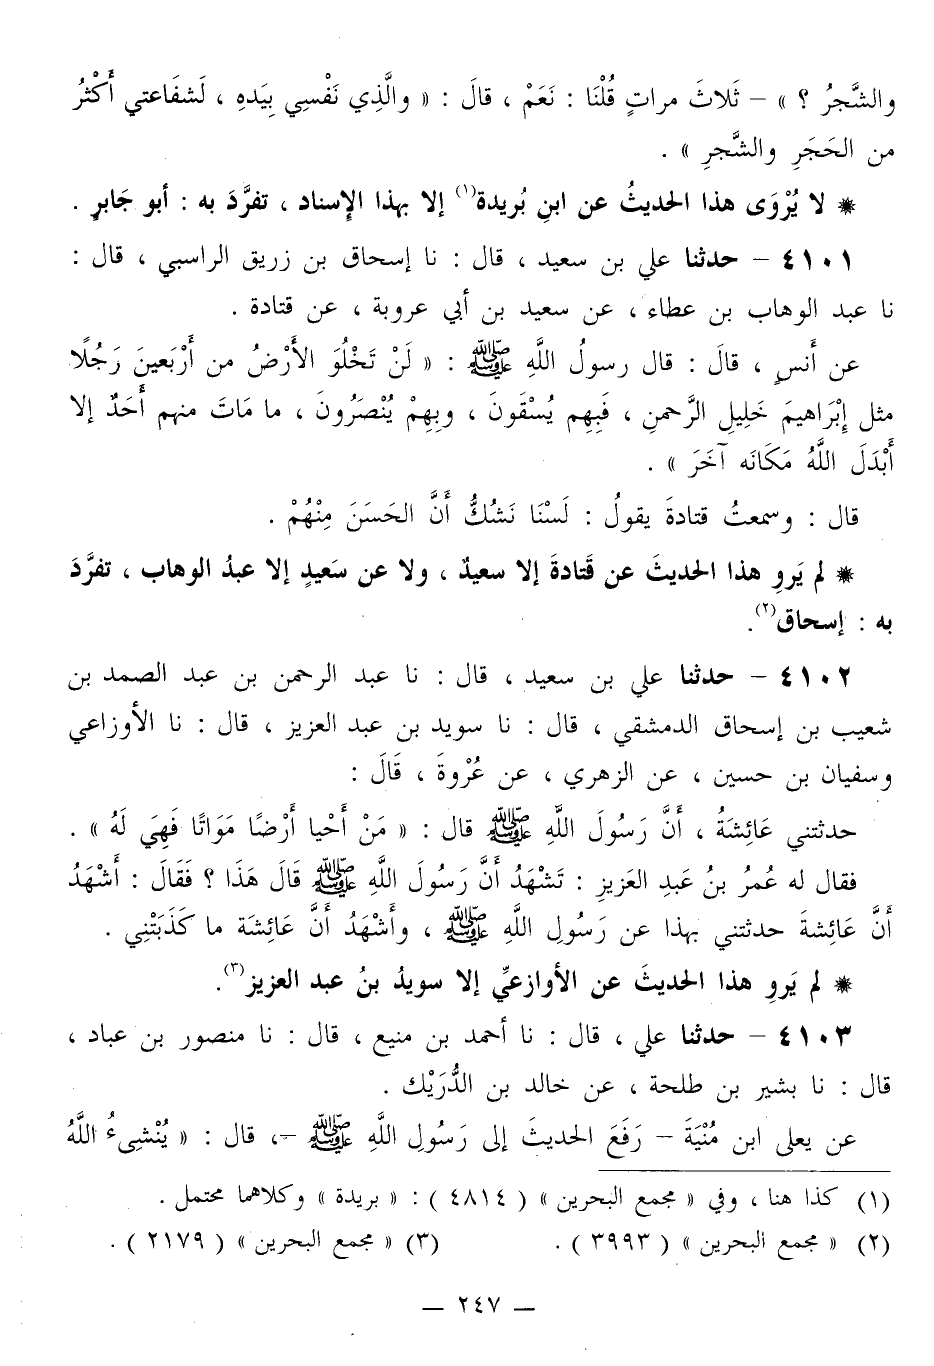 والشَّجرُ ؟ » – ثَلاثَ مراتٍ قُلْنَا : نَعَمْ ، قالَ : « والَّذِي نَفْسِي بِيَدهِ ، لَشفَاعتي أَكْثرُ
من الحَجَرِ والشَّجرِ » .
* لا يُرْوَى هذا الحديثُ عن ابنِ بُريدة(١) إلا بهذا الإسناد ، تفرَّدَ به : أبو جَابرٍ .
٤١٠١ – حدثنا علي بن سعيد ، قال : نا إسحاق بن زريق الراسبي ، قال :
نا عبد الوهاب بن عطاء ، عن سعيد بن أبي عروبة ، عن قتادة .
عن أَنسٍ ، قالَ : قال رسولُ اللَّهِ ﷺ : « لَنْ تَخْلُوَ الأَرْضُ من أَرْبَعينَ رَجُلًا
مثل إِبْرَاهيمَ خَلِيلِ الرَّحمنِ ، فَبِهِم يُسْقَونَ ، وبِهِمْ يُنْصَرُونَ ، ما مَاتَ منهم أَحَدٌ إلا
أَبْدَلَ اللَّهُ مَكَانَه آخَرَ » .
قال : وسمعتُ قتادةَ يقولُ : لَسْنَا نَشكُّ أَنَّ الحَسَنَ مِنْهُمْ .
* لم يَروِ هذا الحديثَ عن قَتادةَ إلا سعيدٌ ، ولا عن سَعيدٍ إلا عبدُ الوهاب ، تفرَّدَ
به : إسحاق(٢).
٤١٠٢ – حدثنا علي بن سعيد ، قال : نا عبد الرحمن بن عبد الصمد بن
شعيب بن إسحاق الدمشقي ، قال : نا سويد بن عبد العزيز ، قال : نا الأوزاعي
وسفيان بن حسين ، عن الزهري ، عن عُرْوةَ ، قَالَ :
حدثتني عَائِشَةُ ، أَنَّ رَسُولَ اللَّهِ ﷺ قال : « مَنْ أَحْيا أَرْضًا مَوَاتًا فَهِيَ لَهُ » .
فقال له عُمرُ بنُ عَبدِ العَزيزِ : تَشْهَدُ أَنَّ رَسُولَ اللَّهِ ﷺ قَالَ هَذَا ؟ فَقَالَ : أَشْهَدُ
أَنَّ عَائِشةَ حدثتني بهذا عن رَسُولِ اللَّهِ ﷺ ، وأَشْهَدُ أَنَّ عَائِشَة ما كَذَبَتْنِي .
* لم يَروِ هذا الحديثَ عن الأوازعيِّ إلا سويدُ بنُ عبد العزيز(٣).
٤١٠٣ – حدثنا علي ، قال : نا أحمد بن منيع ، قال : نا منصور بن عباد ،
قال : نا بشير بن طلحة ، عن خالد بن الدُّرَيْك .
عن يعلى ابن مُنْيَةَ – رَفَعَ الحديثَ إلى رَسُولِ اللَّهِ ﷺ –، قال : « يُنْشِىءُ اللَّهُ
(١) كذا هنا ، وفي « مجمع البحرين » ( ٤٨١٤ ) : « بريدة » وكلاهما محتمل .
(٢) « مجمع البحرين » ( ٣٩٩٣ ) . (٣) « مجمع البحرين » ( ٢١٧٩ ) .
– ٢٤٧ –